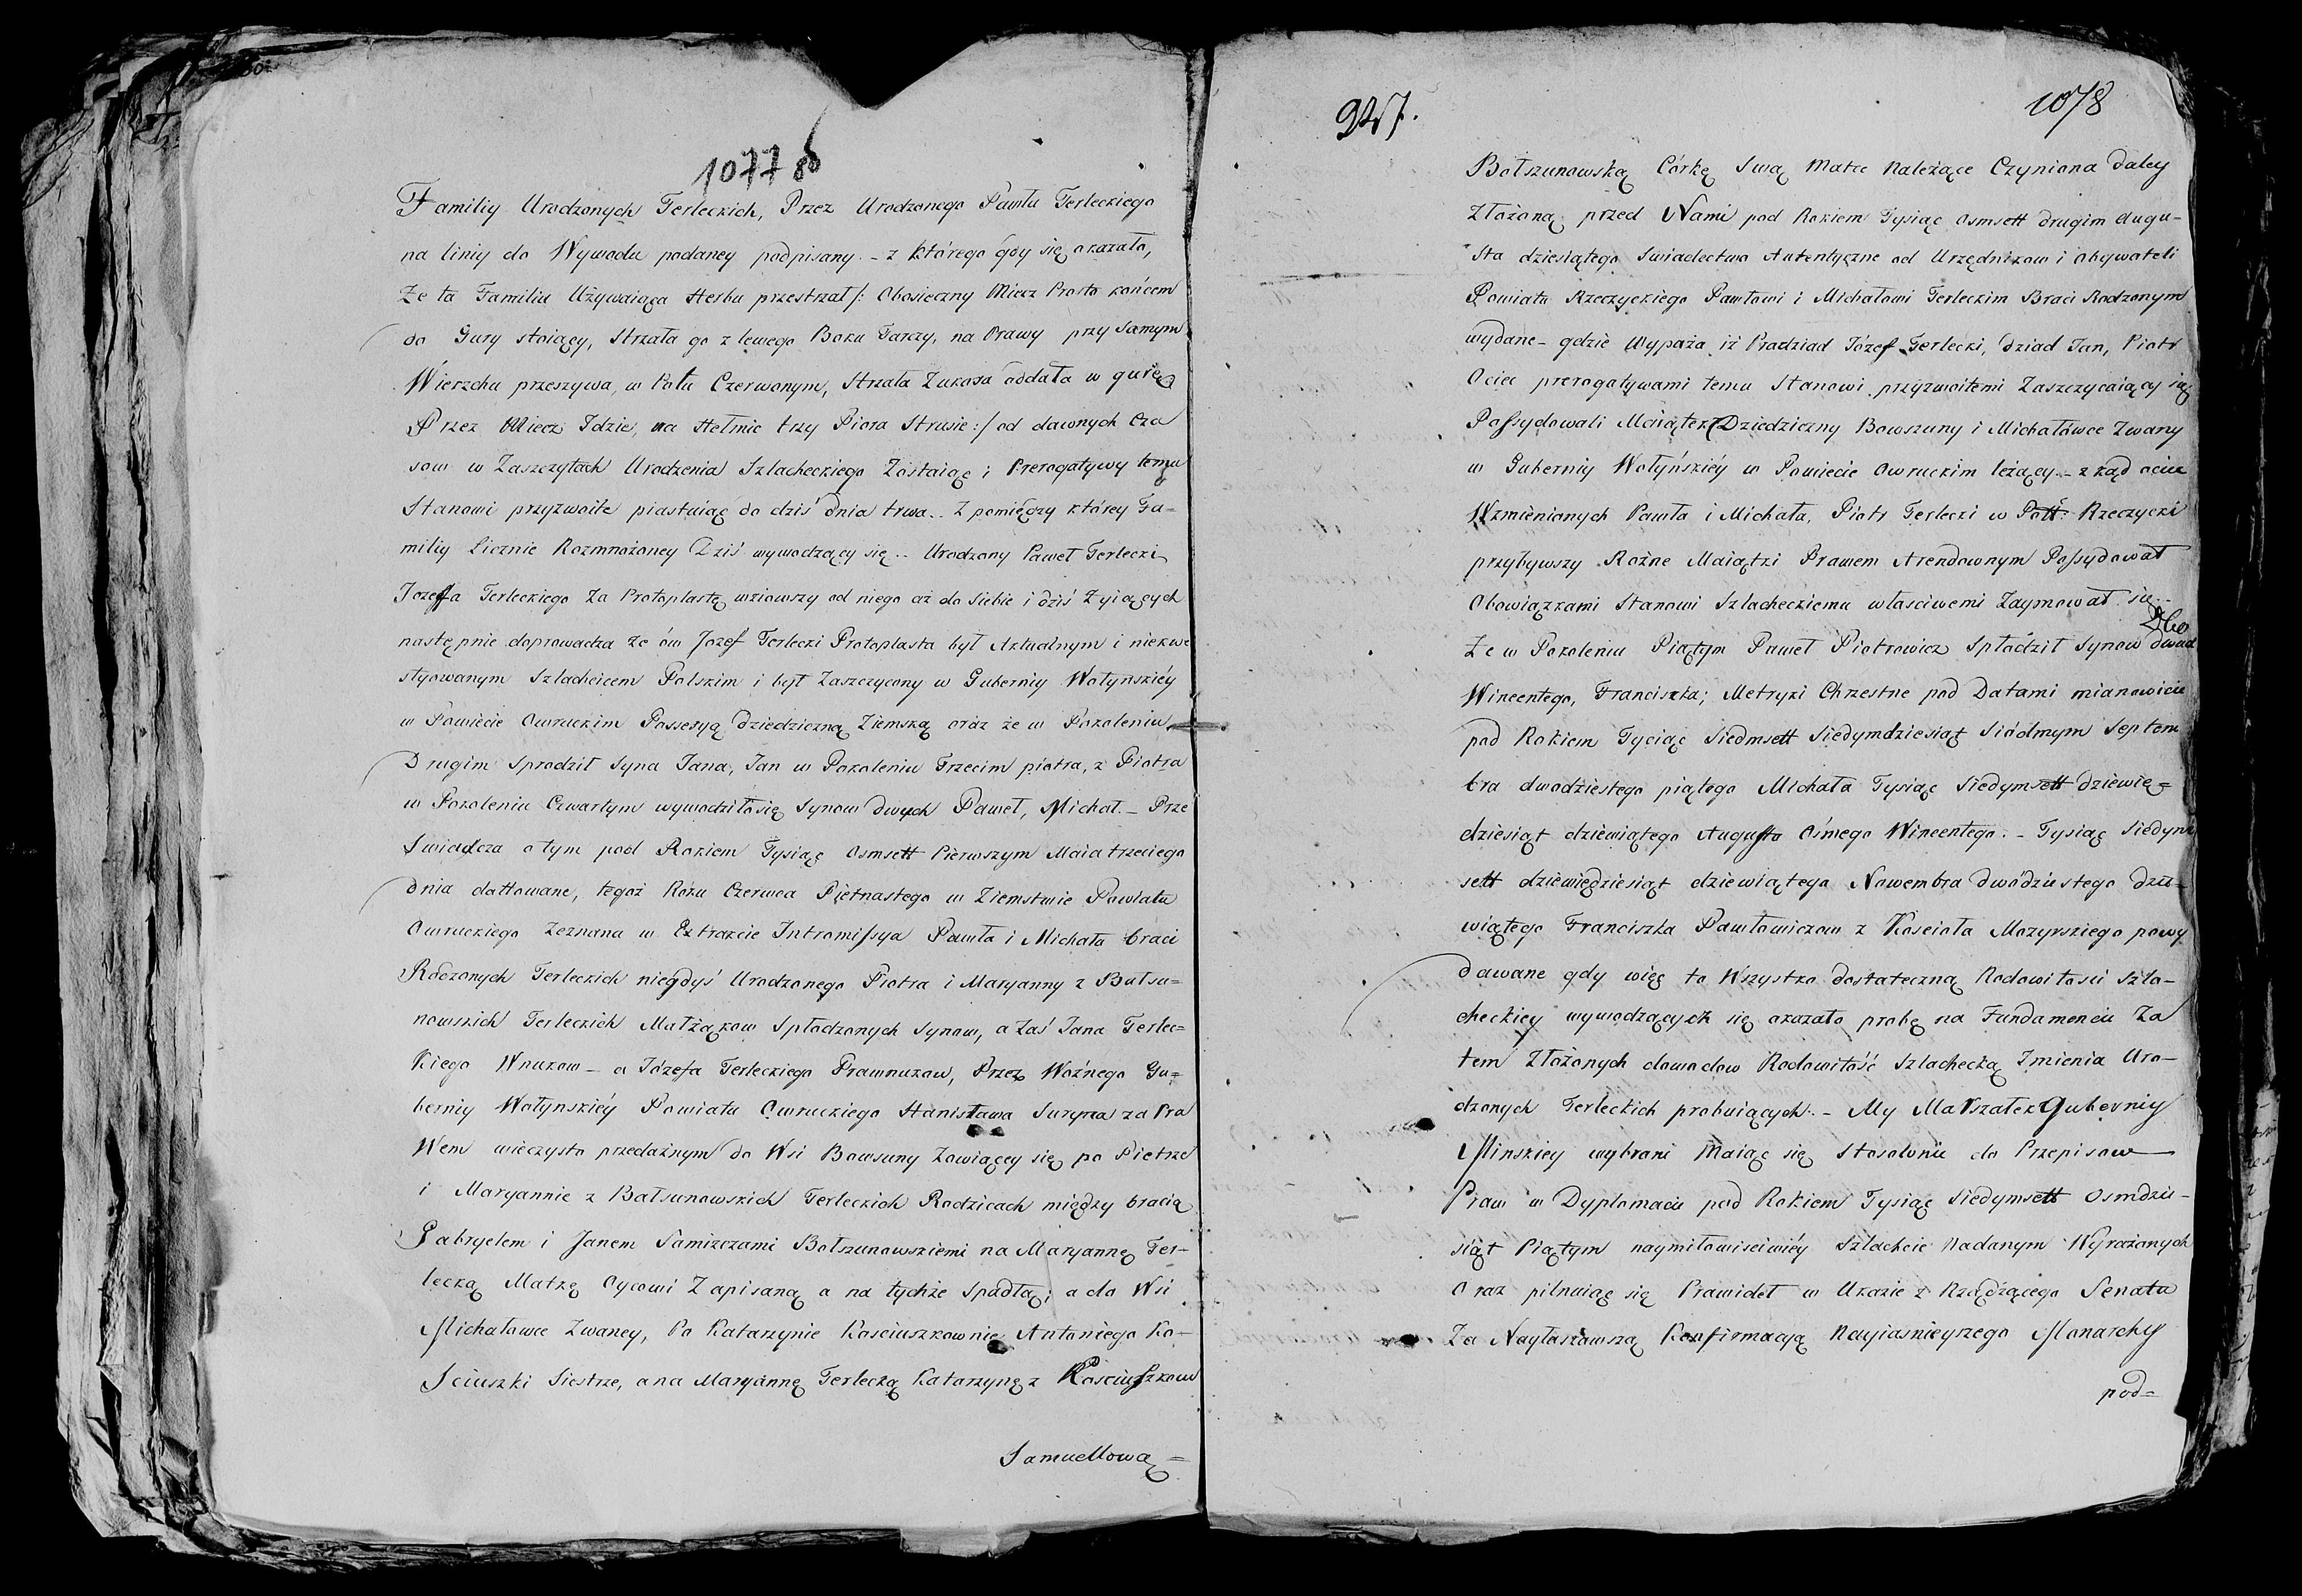 1077 80
Familiy Urodzonych Terleckich, Przez Urodzonego Pawła Terleckiego
na liniy do Wywodu podaney podpisany. – z którego gdy się okazało,
Że ta Familia Używaiąca Herbu przestrzał /: Obosieczny Miecz Prosto końcem
do Gury stoiący, Strzała go z lewego Boku Tarczy, na Prawy przy Samym
Wierzchu przeszywa, w Polu Czerwonym, Strzała Zukosa oddała w gurę
Przez Miecz Idzie, na Hełmie trzy Piora Strusie :/ od dawnych Cza
sow w Zaszczytach Urodzenia Szlacheckiego Zostaiąc i Prerogatywy temu
Stanowi przyzwoite piastuiąc do dziś dnia trwa.. Z pomiędzy którey Fa=
miliy Licznie Rozmnożoney Dziś wywodzący się.. Urodzony Paweł Terlecki
Jozeffa Terleckiego Za Protoplastę wziowszy od niego aż do Siebie i dziś Żyiących
następnie doprowadza że ów Jozef Terlecki Protoplasta był Aktualnym i niekwe
styowanym Szlachcicem Polskim i był Zaszczycony w Guberniy Wołyńskiéy
w Powiecie Owruckim Possesyą dziedziczną Ziemską oraz że w Pokoleniu
Drugim Sprodził Syna Jana, Jan w Pokoleniu Trzecim piotra, z Piotra
w Pokoleniu Czwartym wywodziłosię Synow dwych Paweł, Michał. – Prze
Swiadcza otym pod Rokiem Tysiąc Osmsett Pierwszym Maia trzeciego
dnia dattowane, tegoż Roku Czerwca Piętnastego w Ziemstwie Powiatu
Owruckiego Zeznana w Extrakcie Intromissya Pawła i Michała braci
Rodzonych Terleckich niegdyś Urodzonego Piotra i Maryanny z Bołsu=
nowskich Terleckich Małżąkow Spłodzonych Synow, a Zaś Jana Terlec=
kiego Wnukow – a Józefa Terleckiego Prawnukow, Przez Woźnego Gu=
berniy Wołynskiéy Powiatu Owruckiego Stanisława Suryna za Pra
Wem wieczysto przedażnym do Wsi Bowsuny Zowiącey się po Pietrze
i Maryannie z Bałsunowskich Terleckich Rodzicach między bracią
Gabryelem i Janem Samizczami Bołszunowskiemi na Maryannę Ter=
lecką Matkę Oycowi Zapisaną a na tychże Spadłą; a do Wsi
Michałowce Zwaney, Po Katarzynie Kosciuszkownie Antoniego Ko=
Sciuszki Siestrze, a na Maryannę Terlecką Katarzynę z Kosciuszkow
Samuellową =
927.
1078
Bołszunowską Córkę Swą Matce Należące Czyniona daley
Złożoną przed Nami pod Rokiem Tysiąc Osmsett drugim augu=
sta dziesiątego Swiadectwo Autentyczne od Urzędnikow i Obywateli
Powiatu Rzeczyckiego Pawłowi i Michałowi Terleckim Braci Rodzonym
wydane – gdzie Wypaża iż Pradziad Józef Terlecki, dziad Jan, Piotr
Ociec prerogatywami temu Stanowi przyzwoitemi Zaszczycaiący się
Possydowali Maiątek Dziedziczny Bowszuny i Michałowce Zwany
w Guberniy Wołyńskiéy w Powiecie Owruckim leżący. – zkąd ociec
Wzmienionych Pawła i Michała, Piotr Terlecki w Ptt: Rzeczycki
przybywszy Rożne Maiątki Prawem Arendownym Possydował
Obowiązkami Stanowi Szlacheckiemu własciwemi Zaymował się –
Że w Pokoleniu Piątym Paweł Piotrowicz Spłódził Synow dwuch
Wincentego, Franciszka; Metryki Chrzestne pod Datami mianowicie
pod Rokiem Tyciąc Siedmsett Siedymdziesiąt Siódmym Septem
bra dwodziestego piątego Michała Tysiąc Siedymsett dziewię=
dziesiąt dziewiątego Augusta Osmego Wincentego. – Tysiąc Siedym
sett dziewiędziesiąt dziewiątego Nowembra dwódziestego dzie=
wiątego Franciszka Pawłowiczow z Kosciała Mozyrskiego powy
dawane gdy więc to Wszystko dostateczną Rodowitosci Szla=
checkiey wywodzących się okazało probę na Fundamencie Za
tem Złożonych dowodow Rodowitość Szlachecką Imienia Uro=
dzonych Terleckich probuiących. – My Marszałek Guberniy
Minskiey wybrani Maiąc się Stosolonie do Przepisow
Praw w Dyplomacie pod Rokiem Tysiąc Siedymsett Osmdzie=
siąt Piątym naymiłowisciwiéy Szlachcie Nadanym Wyrażonych
Oraz pilnuiąc się Prawideł w Ukazie z Rządzącego Senatu
Za Nayłaskawszą Konfirmacyą Nayiasnieyszego Monarchy
pod=